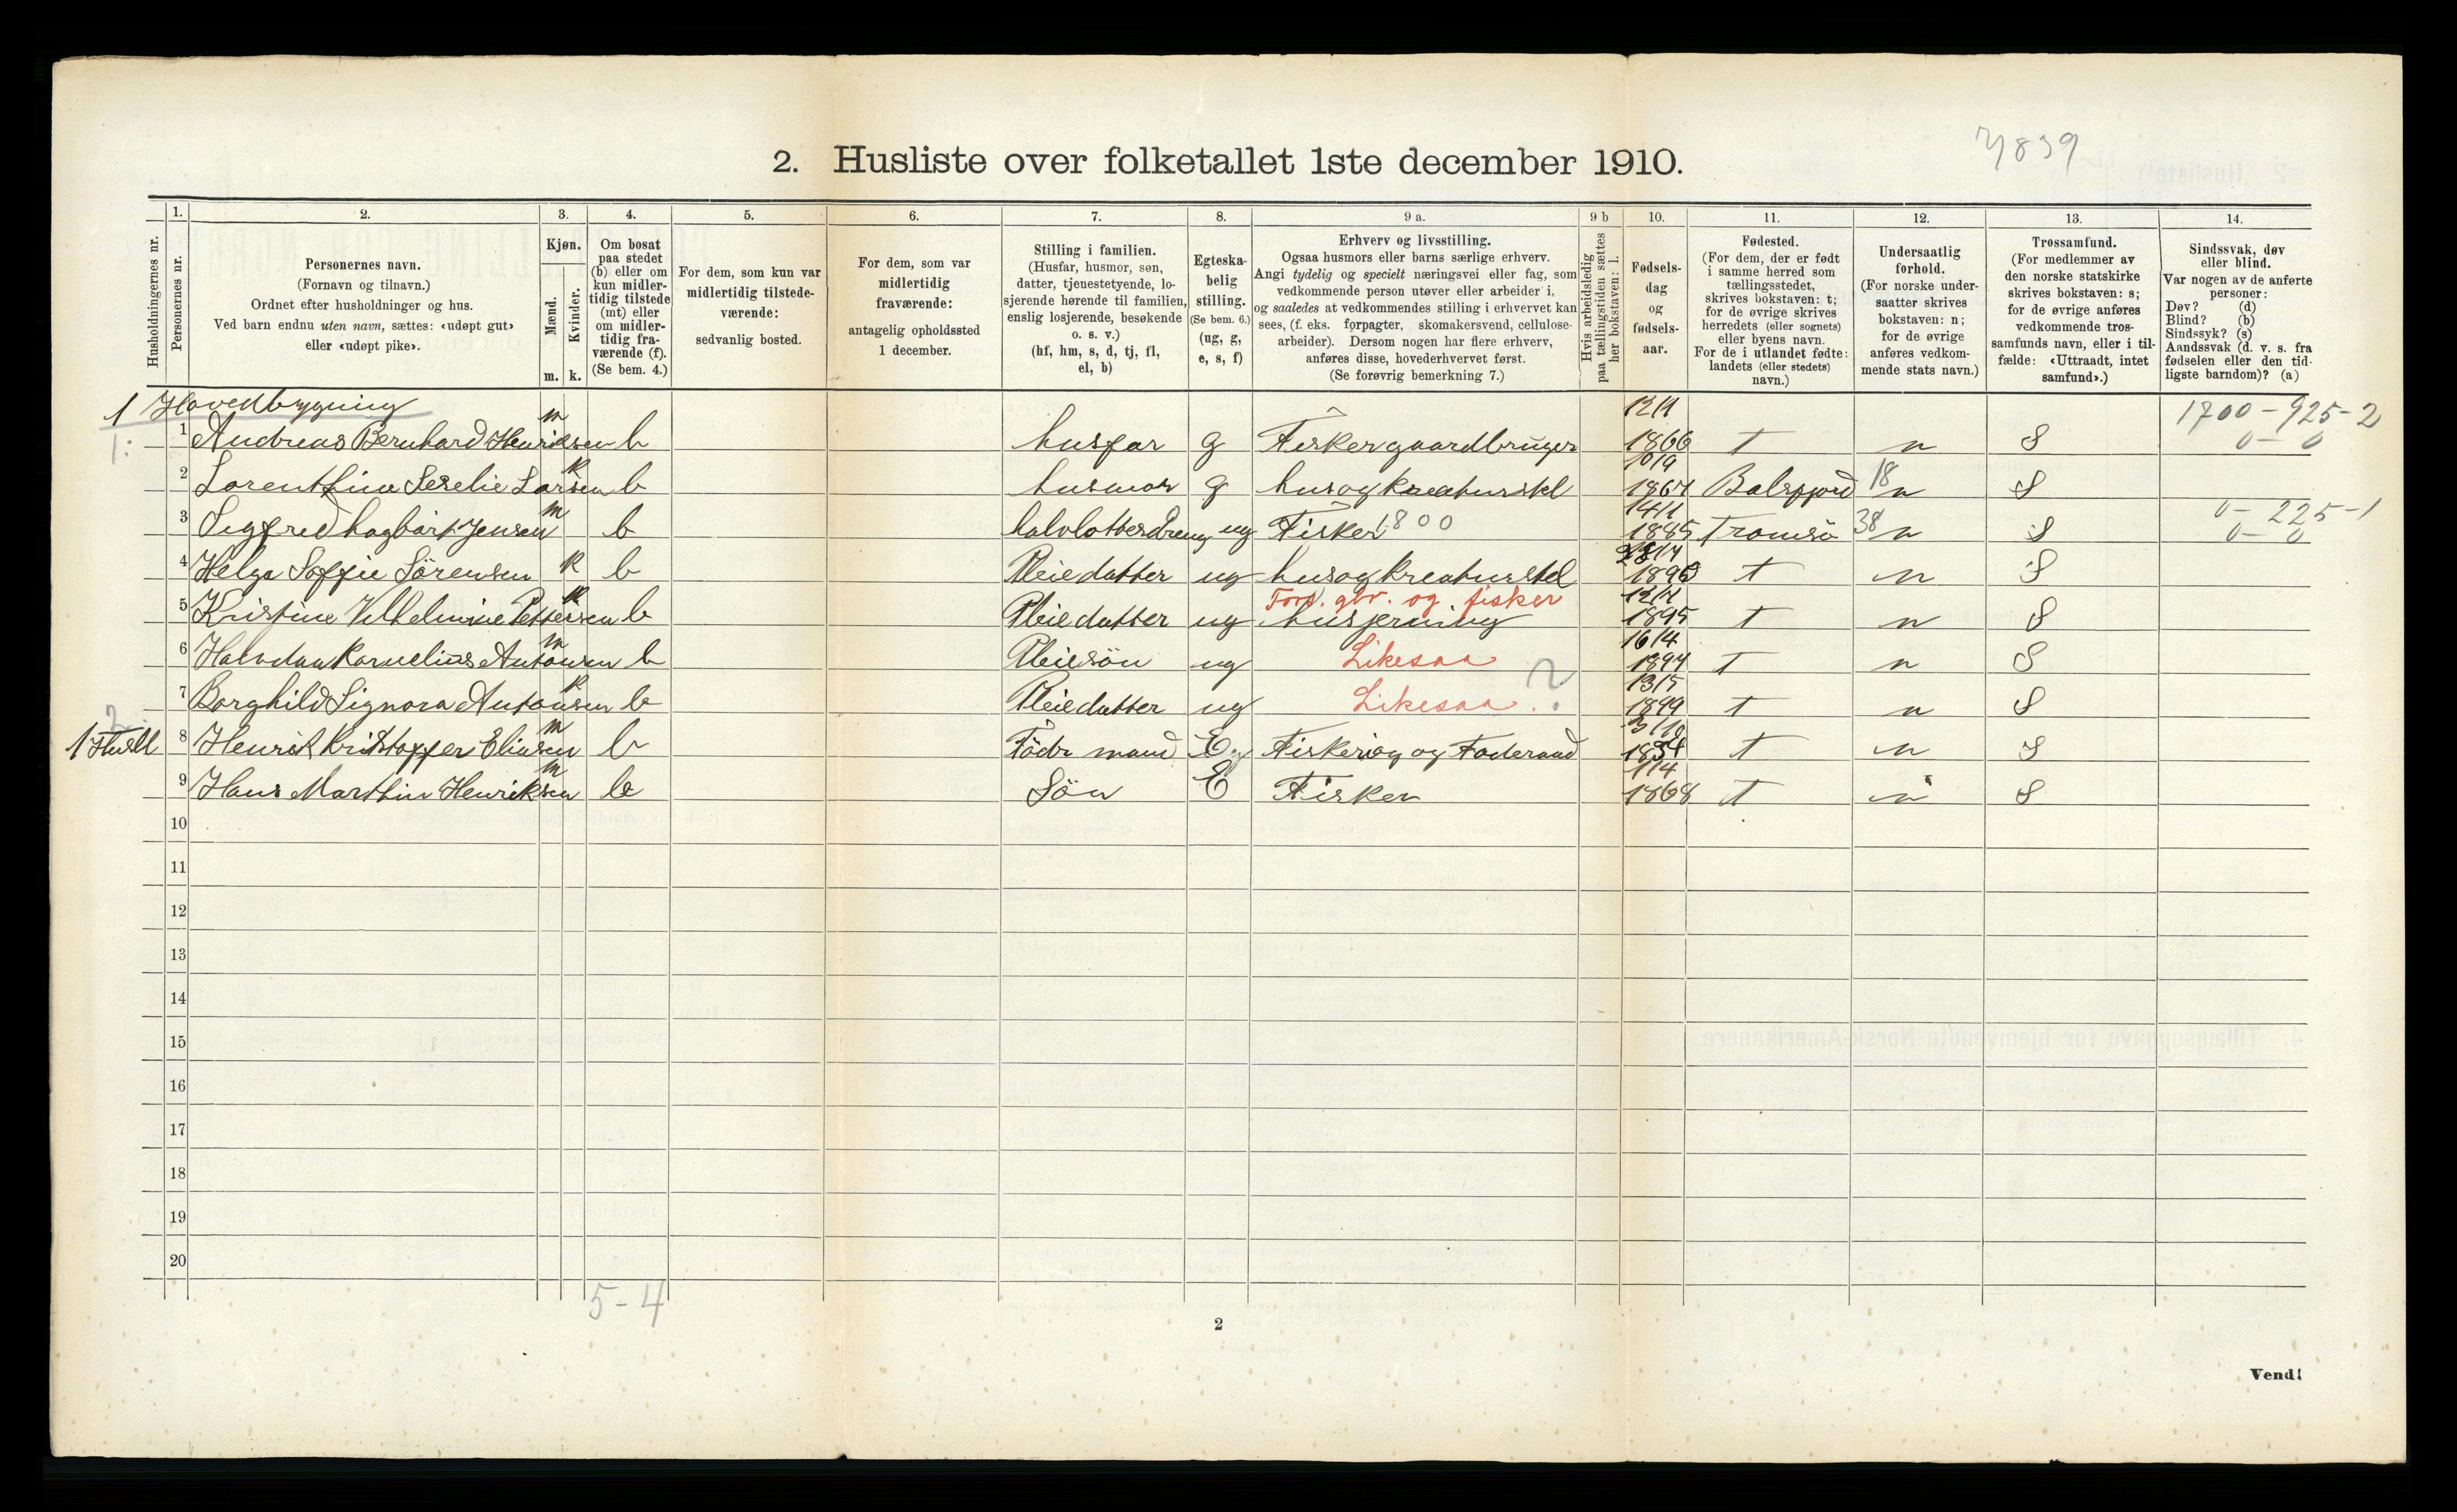 7839
2. Husliste over folketallet 1ste december 1910.
1. 2. 3. 4. 5. 6. 7. 8. 9 a. 9 b 10. 11. 12. 13. 14.
Husholdningernes nr.
Personernes nr.
Personernes navn.
(Fornavn og tilnavn.)
Ordnet efter husholdninger og hus.
Ved barn endnu uten navn, sættes: «udøpt gut»
eller «udøpt pike».
Kjøn.
Mænd.
Kvinder.
m. k.
Om bosat
paa stedet
(b) eller om
kun midler-
tidig tilstede
(mt) eller
om midler-
tidig fra-
værende (f).
(Se bem. 4.)
For dem, som kun var
midlertidig tilstede-
værende:
sedvanlig bosted.
For dem, som var
midlertidig
fraværende:
antagelig opholdssted
1 december.
Stilling i familien.
(Husfar, husmor, søn,
datter, tjenestetyende, lo-
sjerende hørende til familien,
enslig losjerende, besøkende
o. s. v.)
(hf, hm, s, d, tj, fl,
el, b)
Egteska-
belig
stilling.
(Se bem. 6.)
(ug, g,
e, s, f)
Erhverv og livsstilling.
Ogsaa husmors eller barns særlige erhverv.
Angi tydelig og specielt næringsvei eller fag, som
vedkommende person utøver eller arbeider i,
og saaledes at vedkommendes stilling i erhvervet kan
sees, (f. eks. forpagter, skomakersvend, cellulose-
arbeider). Dersom nogen har flere erhverv,
anføres disse, hovederhvervet først.
(Se forøvrig bemerkning 7.)
Hvis arbeidsledig
paa tællingstiden sættes
her bokstaven: l.
Fødsels-
dag
og
fødsels-
aar.
Fødested.
(For dem, der er født
i samme herred som
tællingsstedet,
skrives bokstaven: t;
for de øvrige skrives
herredets (eller sognets)
eller byens navn.
For de i utlandet fødte:
landets (eller stedets)
navn.)
Undersaatlig
forhold.
(For norske under-
saatter skrives
bokstaven: n;
for de øvrige
anføres vedkom-
mende stats navn.)
Trossamfund.
(For medlemmer av
den norske statskirke
skrives bokstaven: s;
for de øvrige anføres
vedkommende tros-
samfunds navn, eller i til-
fælde: «Uttraadt, intet
samfund».)
Sindssvak, døv
eller blind.
Var nogen av de anførte
personer:
Døv? (d)
Blind? (b)
Sindssyk? (s)
Aandssvak (d. v. s. fra
fødselen eller den tid-
ligste barndom)? (a)
1 Hovedbygning 12/1 1700-925-2
1: 1 Andreas Bernhard Henriksen m b husfar g Fisker gaardbruger 1866 t n S 0-0
2 Lorenthine Serelie Larsen k b husmor g hus og kreaturstel 10/9 1867 Balsfjord 18 n S
3 Sigfred hagbart Jensen m b halvlottesdreng ug Fisker 800 14/1 1885 Tromsö 38 n S 0-225-1 0-0
4 Helga Soffie Sörensen k b Pleiedatter ug hus og kreaturstel t n S
Fors. gbr. og fisker
5 Kristine Vilhelmine Pettersen k b Pleiedatter ug husjerning 1895 t n S
6 Halvdan Kornelius Antonsen m b Pleiesön ug Likesaa 16/4 1894 t n S
7 Borghild Signora Antonsen k b Pleiedatter ug Likesaa ? 13/5 1899 t n S
2.
8 Henrik Kristoffer Eliasen m b Föder mand E Fiskeri og Foderaad 3/10 t n S
9 Hans Marthin Henriksen m b Sön E Fisker 1/4 1868 t n S
10
11
12
13
14
15
16
17
18
19
20
5-4
2
Vend!